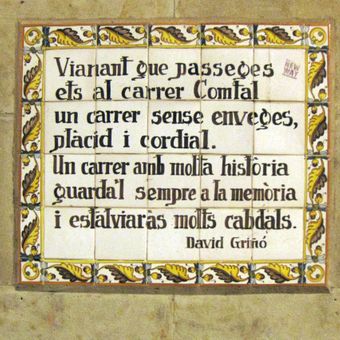 Vianant que passeges
ets al carrer Comtal
un carrer sense enveges,
plàcid i cordial.
Un carrer amb molta història
guarda'l sempre a la memòria
i estalviaràs molts cabdals.
David Griñó
NEW WAY